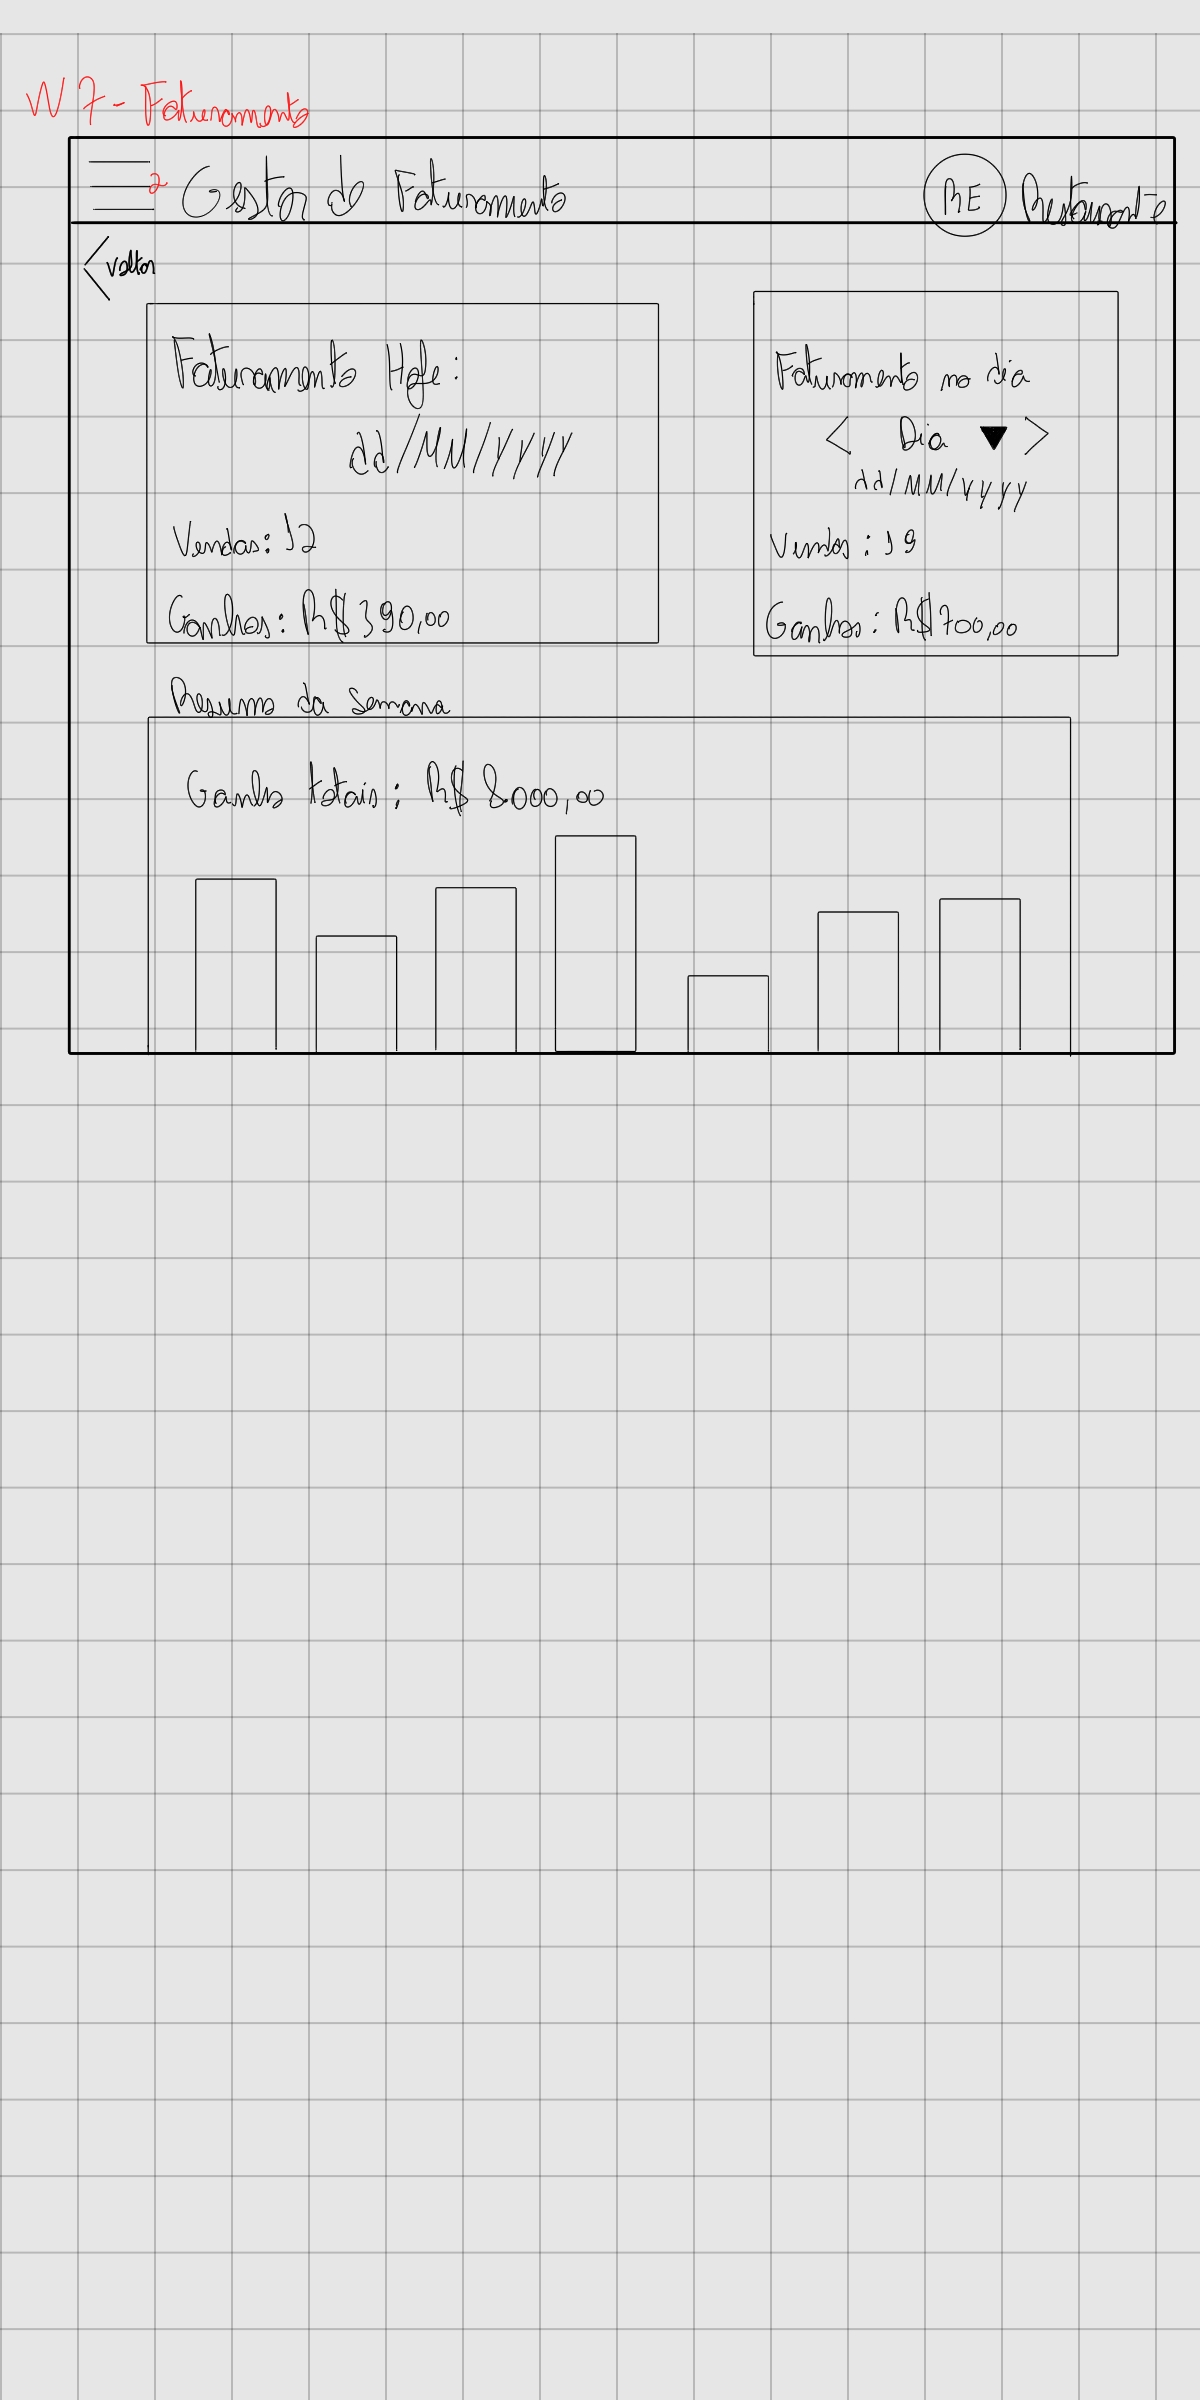 W7 - Faturamento
2 Gestor de Faturamento RE Restaurante
< Voltar
Faturamento Hoje:
dd/MM/YYYY
Vendas: 12
Ganhos: R$ 390,00
Faturamento no dia
< Dia ▼ >
dd/MM/YYYY
Vendas: 19
Ganhos: R$ 700,00
Resumo da Semana
Ganho totais: R$ 8000,00